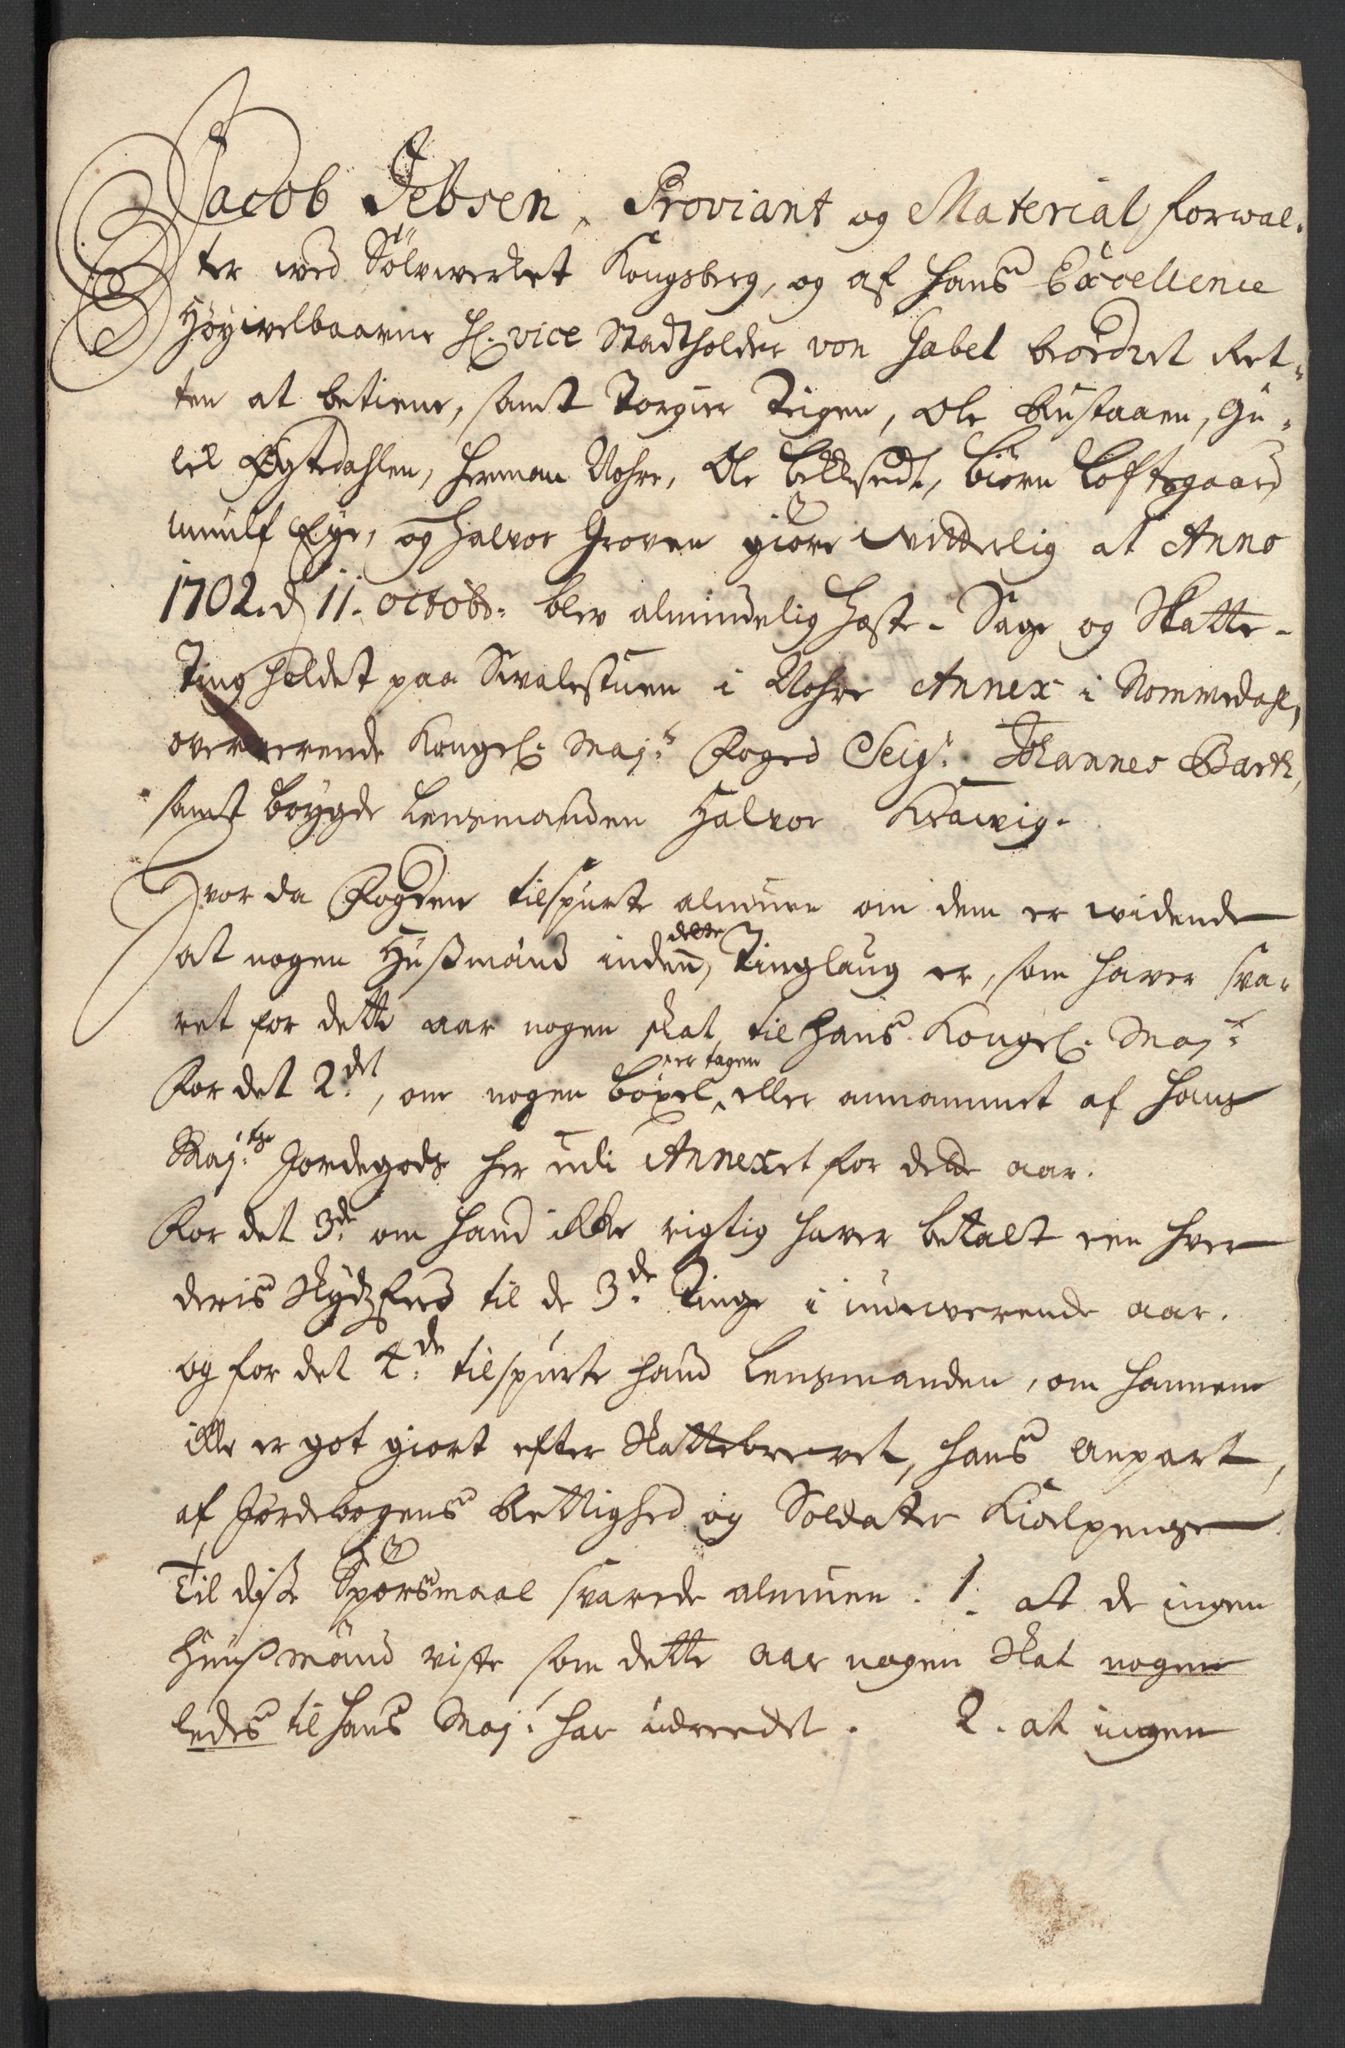 Jacob Jebsen, Proviant og Material forwal-
ter wed Sølvwerket Kongsberg, og af Hans Excellence
Høyvelbaarne H. vice Stadtholder von Gabel beordret Ret-
ten at betiene, samt Torgier Teigen, Ole Rustaaen, Gu-
lek Øgtedahlen, Herman Nohre, Ole biørn Loftsgaard
Eye, og Halvor Groven giøre witterlig at Anno
1702. d 11. octobr. blev almindelig Høste- Sage og Skatte-
Ting holdet paa Svalestuen i Nohre Annex i Nommedahl,
overværende Kongel. Maj.ts Foged Seigr. Johannes Barth,
samt bøygde Lensmanden Halvor Krawig.
Hvor da Fogden tilspurte almuen om dem er widende
at nogen Hussmænd inden dette Tinglaug er, som haver sva-
ret for dette aar nogen skat til Hans Kongel. Maj.t
For det 2.det, om nogen bøxel er tagen eller annammet af Hans
Maj.ts Jordegods her udi Annexet for dette aar.
For det 3.de om hand ikke rigtig haver betalt een hver
deris Skydsferd til de 3.de Tinge i nuwerende aar.
og for det 4.de tilspurte hand Lensmanden, om hannem
ikke er got giort efter Skattebrevet, hans anpart,
af Jordebogens Rettighed og Soldatter Kiolpenge
Til disse Spørsmaal svarede almuen. 1. at de ingen
Huussmænd viste som dette aar nogen Skat nogen-
ledes til Hans Maj.t har udreedet. 2. at ingen